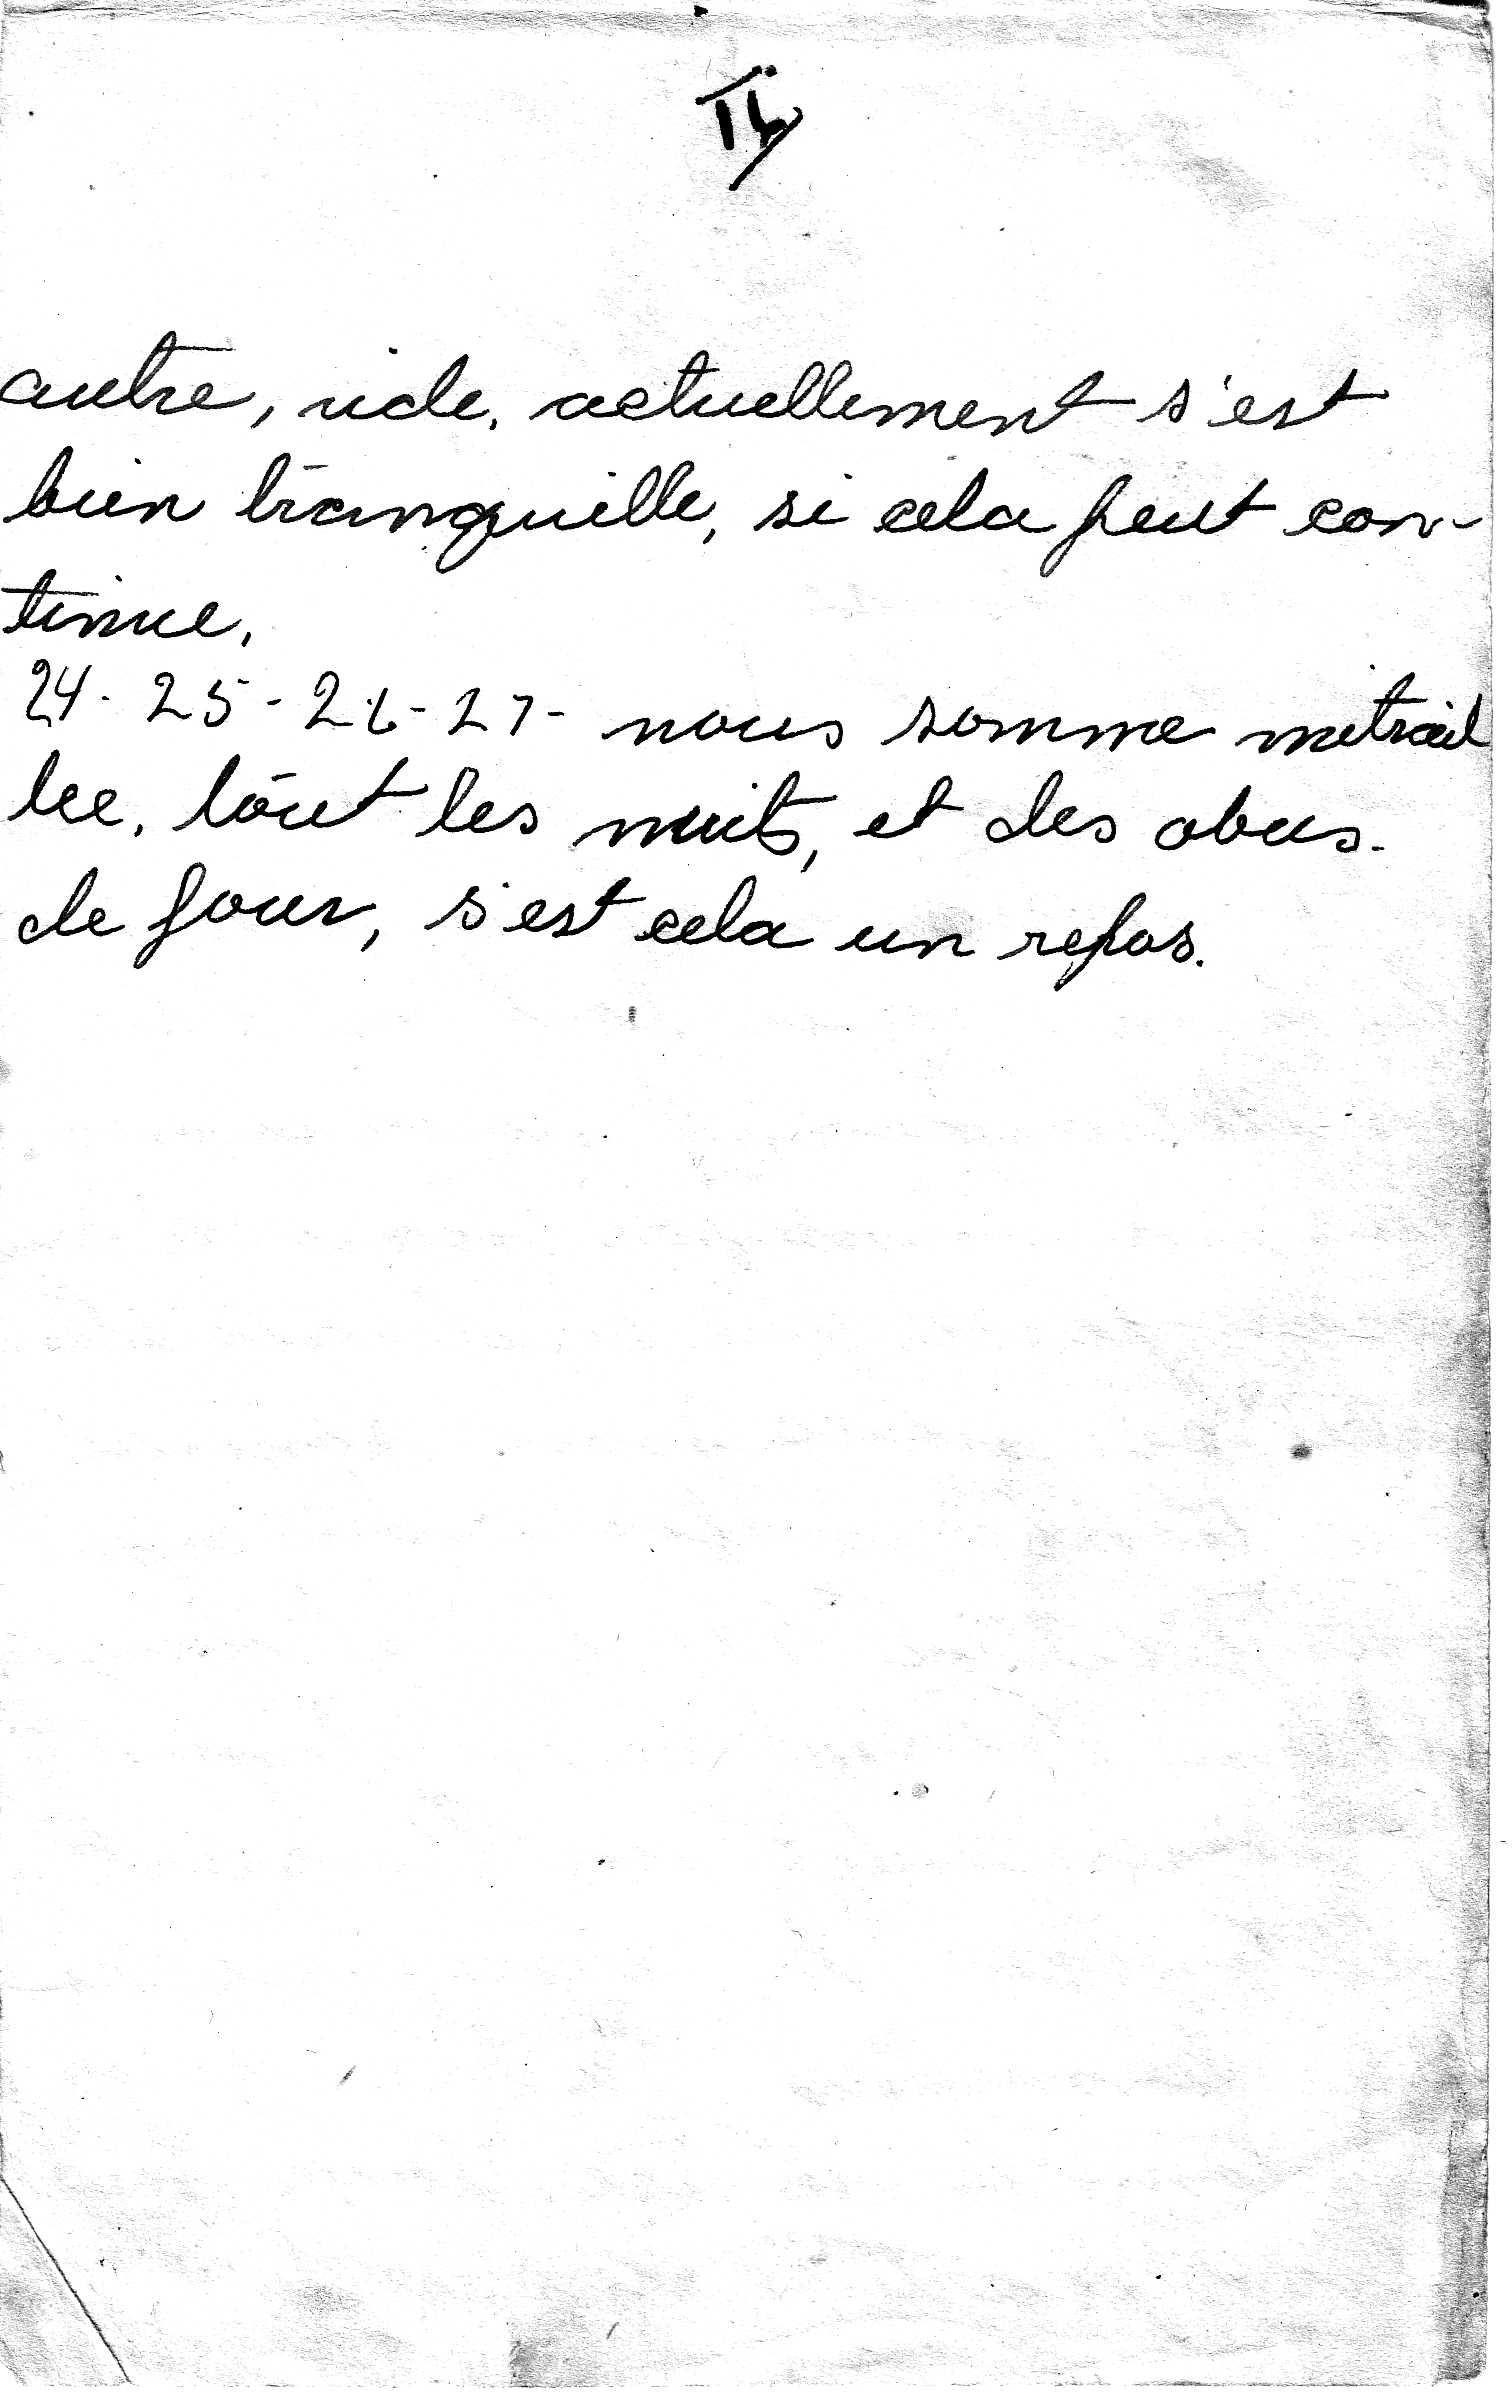 autre, vide, actuellement s'est
bien tranquille, si cela peut con-
tinue.
24 - 25 - 26 - 27 - nous somme mitrail
lee, tout les nuits, et des obus.
de jour, s'est cela un repos.